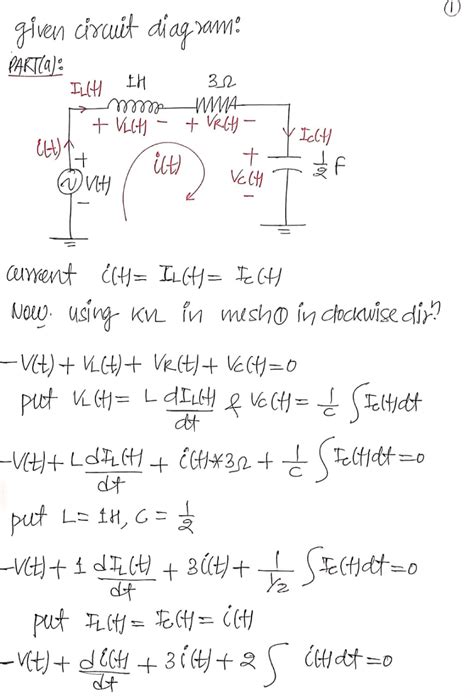 ①
given circuit diagram:
PART(a):
IL(t) 1H 3Ω
+ VL(t) − + VR(t) − Ic(t)
i(t) + V(t) − i(t) + Vc(t) − 1/2 F
current i(t) = IL(t) = Ic(t)
Now. using KVL in mesh① in clockwise dir?
−V(t) + VL(t) + VR(t) + Vc(t) = 0
put VL(t) = L dIL(t)/dt & Vc(t) = 1/C ∫ Ic(t)dt
−V(t) + L dIL(t)/dt + i(t)*3Ω + 1/C ∫ Ic(t)dt = 0
put L = 1H, C = 1/2
−V(t) + 1 dIL(t)/dt + 3i(t) + 1/1/2 ∫ Ic(t)dt = 0
put IL(t) = Ic(t) = i(t)
−V(t) + di(t)/dt + 3i(t) + 2 ∫ i(t)dt = 0